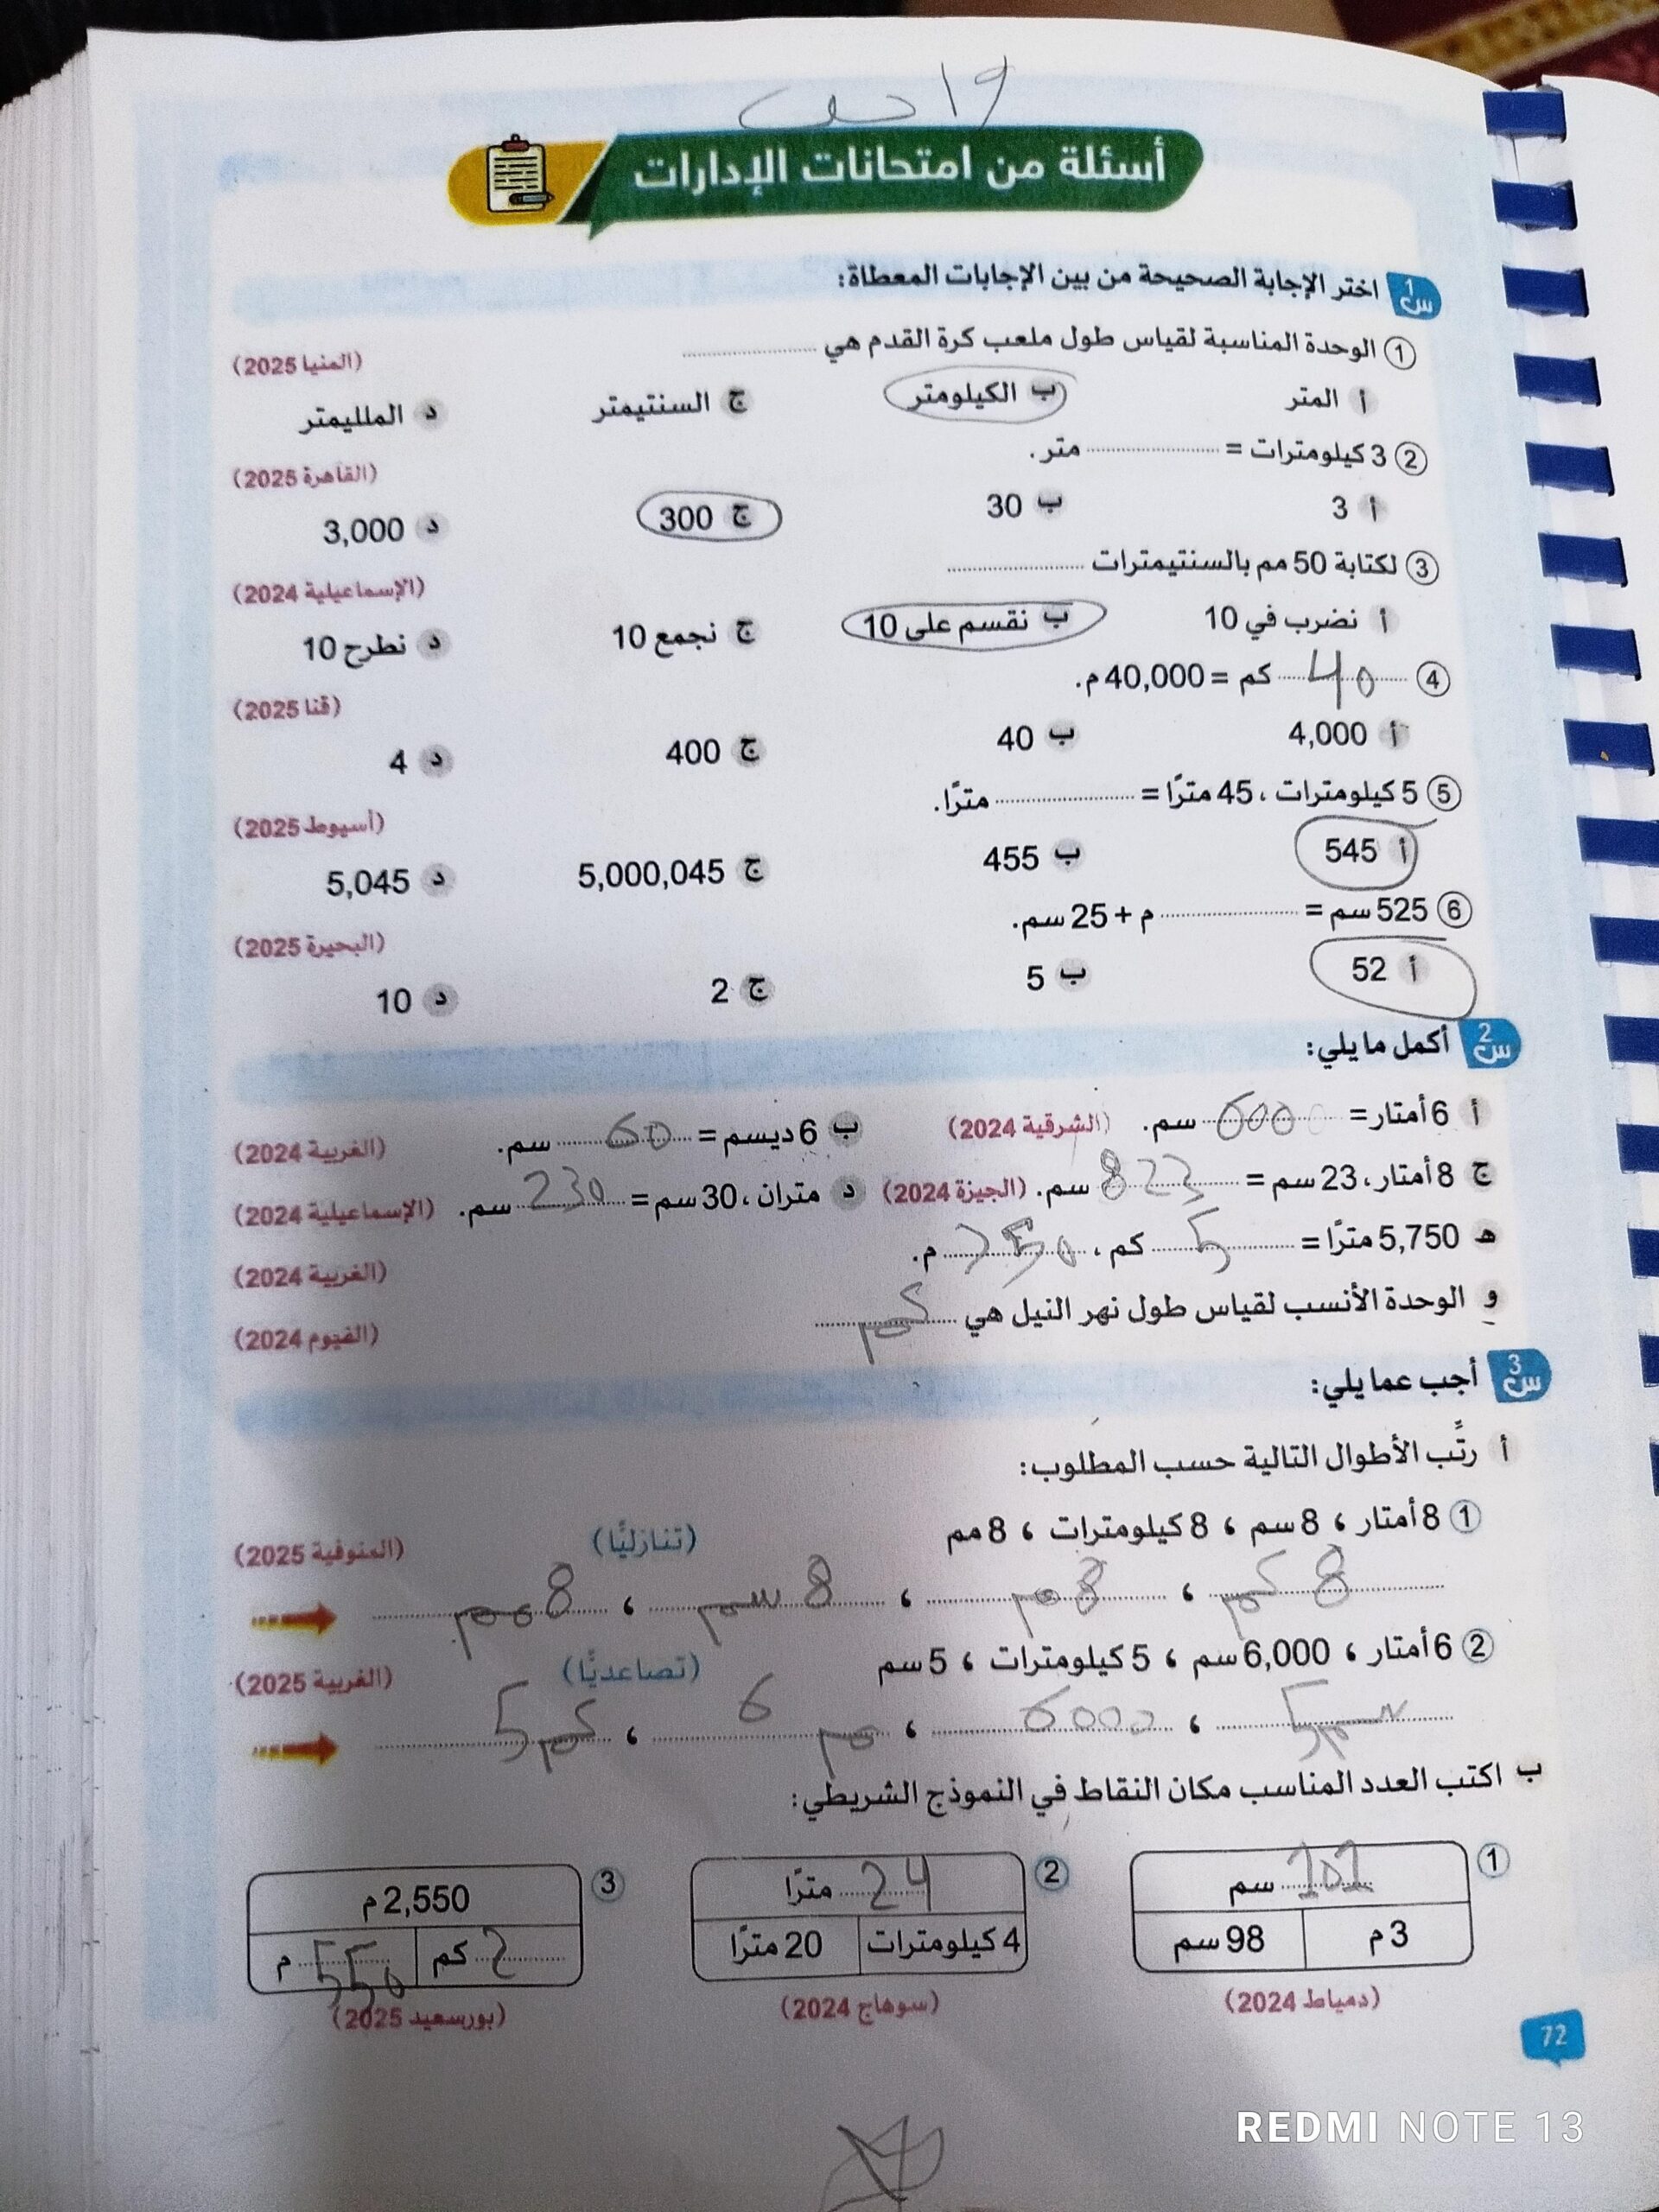 19 درس
أسئلة من امتحانات الإدارات
س1 اختر الإجابة الصحيحة من بين الإجابات المعطاة:
1 الوحدة المناسبة لقياس طول ملعب كرة القدم هي ............ (المنيا 2025)
أ المتر ب الكيلومتر ج السنتيمتر د الملليمتر
2 3 كيلومترات = ............ متر. (القاهرة 2025)
أ 3 ب 30 ج 300 د 3,000
3 لكتابة 50 مم بالسنتيمترات ............ (الإسماعيلية 2024)
أ نضرب في 10 ب نقسم على 10 ج نجمع 10 د نطرح 10
4 40 كم = 40,000 م. (قنا 2025)
أ 4,000 ب 40 ج 400 د 4
5 5 كيلومترات، 45 مترًا = ............ مترًا. (أسيوط 2025)
أ 545 ب 455 ج 5,000,045 د 5,045
6 525 سم = ............ م + 25 سم. (البحيرة 2025)
أ 52 ب 5 ج 2 د 10
س2 أكمل ما يلي:
أ 6 أمتار = 600 سم. (الشرقية 2024) ب 6 ديسم = 60 سم. (الغربية 2024)
ج 8 أمتار، 23 سم = 823 سم. (الجيزة 2024) د متران، 30 سم = 230 سم. (الإسماعيلية 2024)
هـ 5,750 مترًا = 5 كم، 750 م. (الغربية 2024)
و الوحدة الأنسب لقياس طول نهر النيل هي كم (الفيوم 2024)
س3 أجب عما يلي:
أ رتِّب الأطوال التالية حسب المطلوب:
1 8 أمتار ، 8 سم ، 8 كيلومترات ، 8 مم (تنازليًّا) (المنوفية 2025)
8 كم ، 8 م ، 8 سم ، 8 مم
2 6 أمتار ، 6,000 سم ، 5 كيلومترات ، 5 سم (تصاعديًّا) (الغربية 2025)
5 سم ، 6000 ، 6 م ، 5 كم
ب اكتب العدد المناسب مكان النقاط في النموذج الشريطي:
1 101 سم
3 م 98 سم
(دمياط 2024)
2 24 مترًا
4 كيلومترات 20 مترًا
(سوهاج 2024)
3 2,550 م
2 كم 550 م
(بورسعيد 2025)
72
REDMI NOTE 13